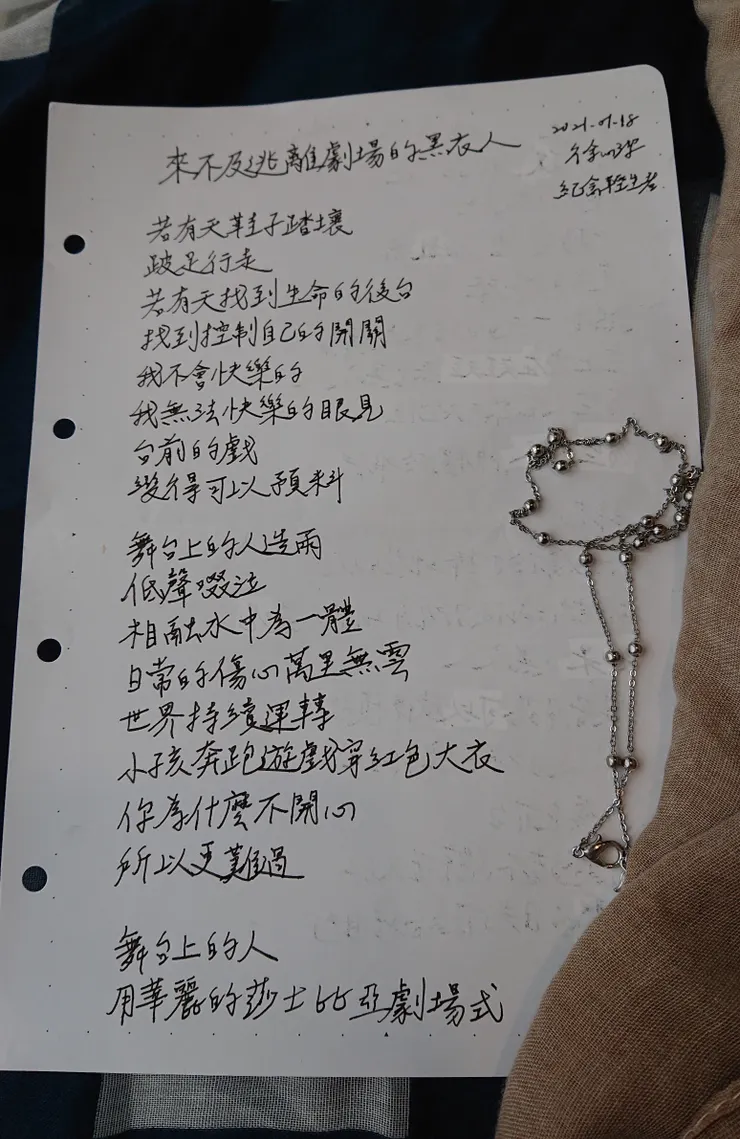 來不及逃離劇場的黑衣人
2021.01.18
徐
紀念輕生者
若有天鞋子踏壞
跛足行走
若有天找到生命的後台
找到控制自己的開關
我不會快樂的
我無法快樂的眼見
台前的戲
變得可以預料
舞台上的人造雨
低聲啜泣
相融水中為一體
日常的傷心萬里無雲
世界持續運轉
小孩奔跑遊戲穿紅色大衣
你為什麼不開心
所以更難過
舞台上的人
用華麗的莎士比亞劇場式